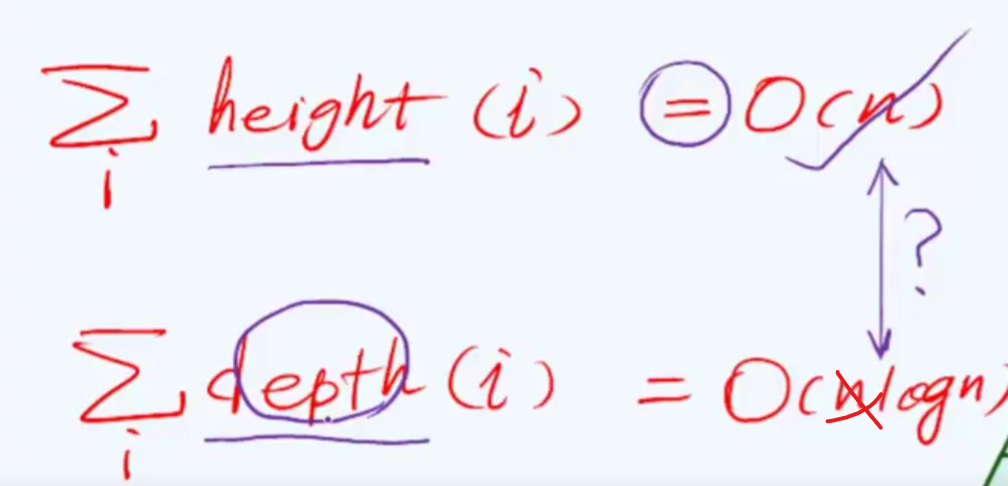 ∑ height (i) = O(n)
i
?
∑ depth (i) = O(n logn)
i